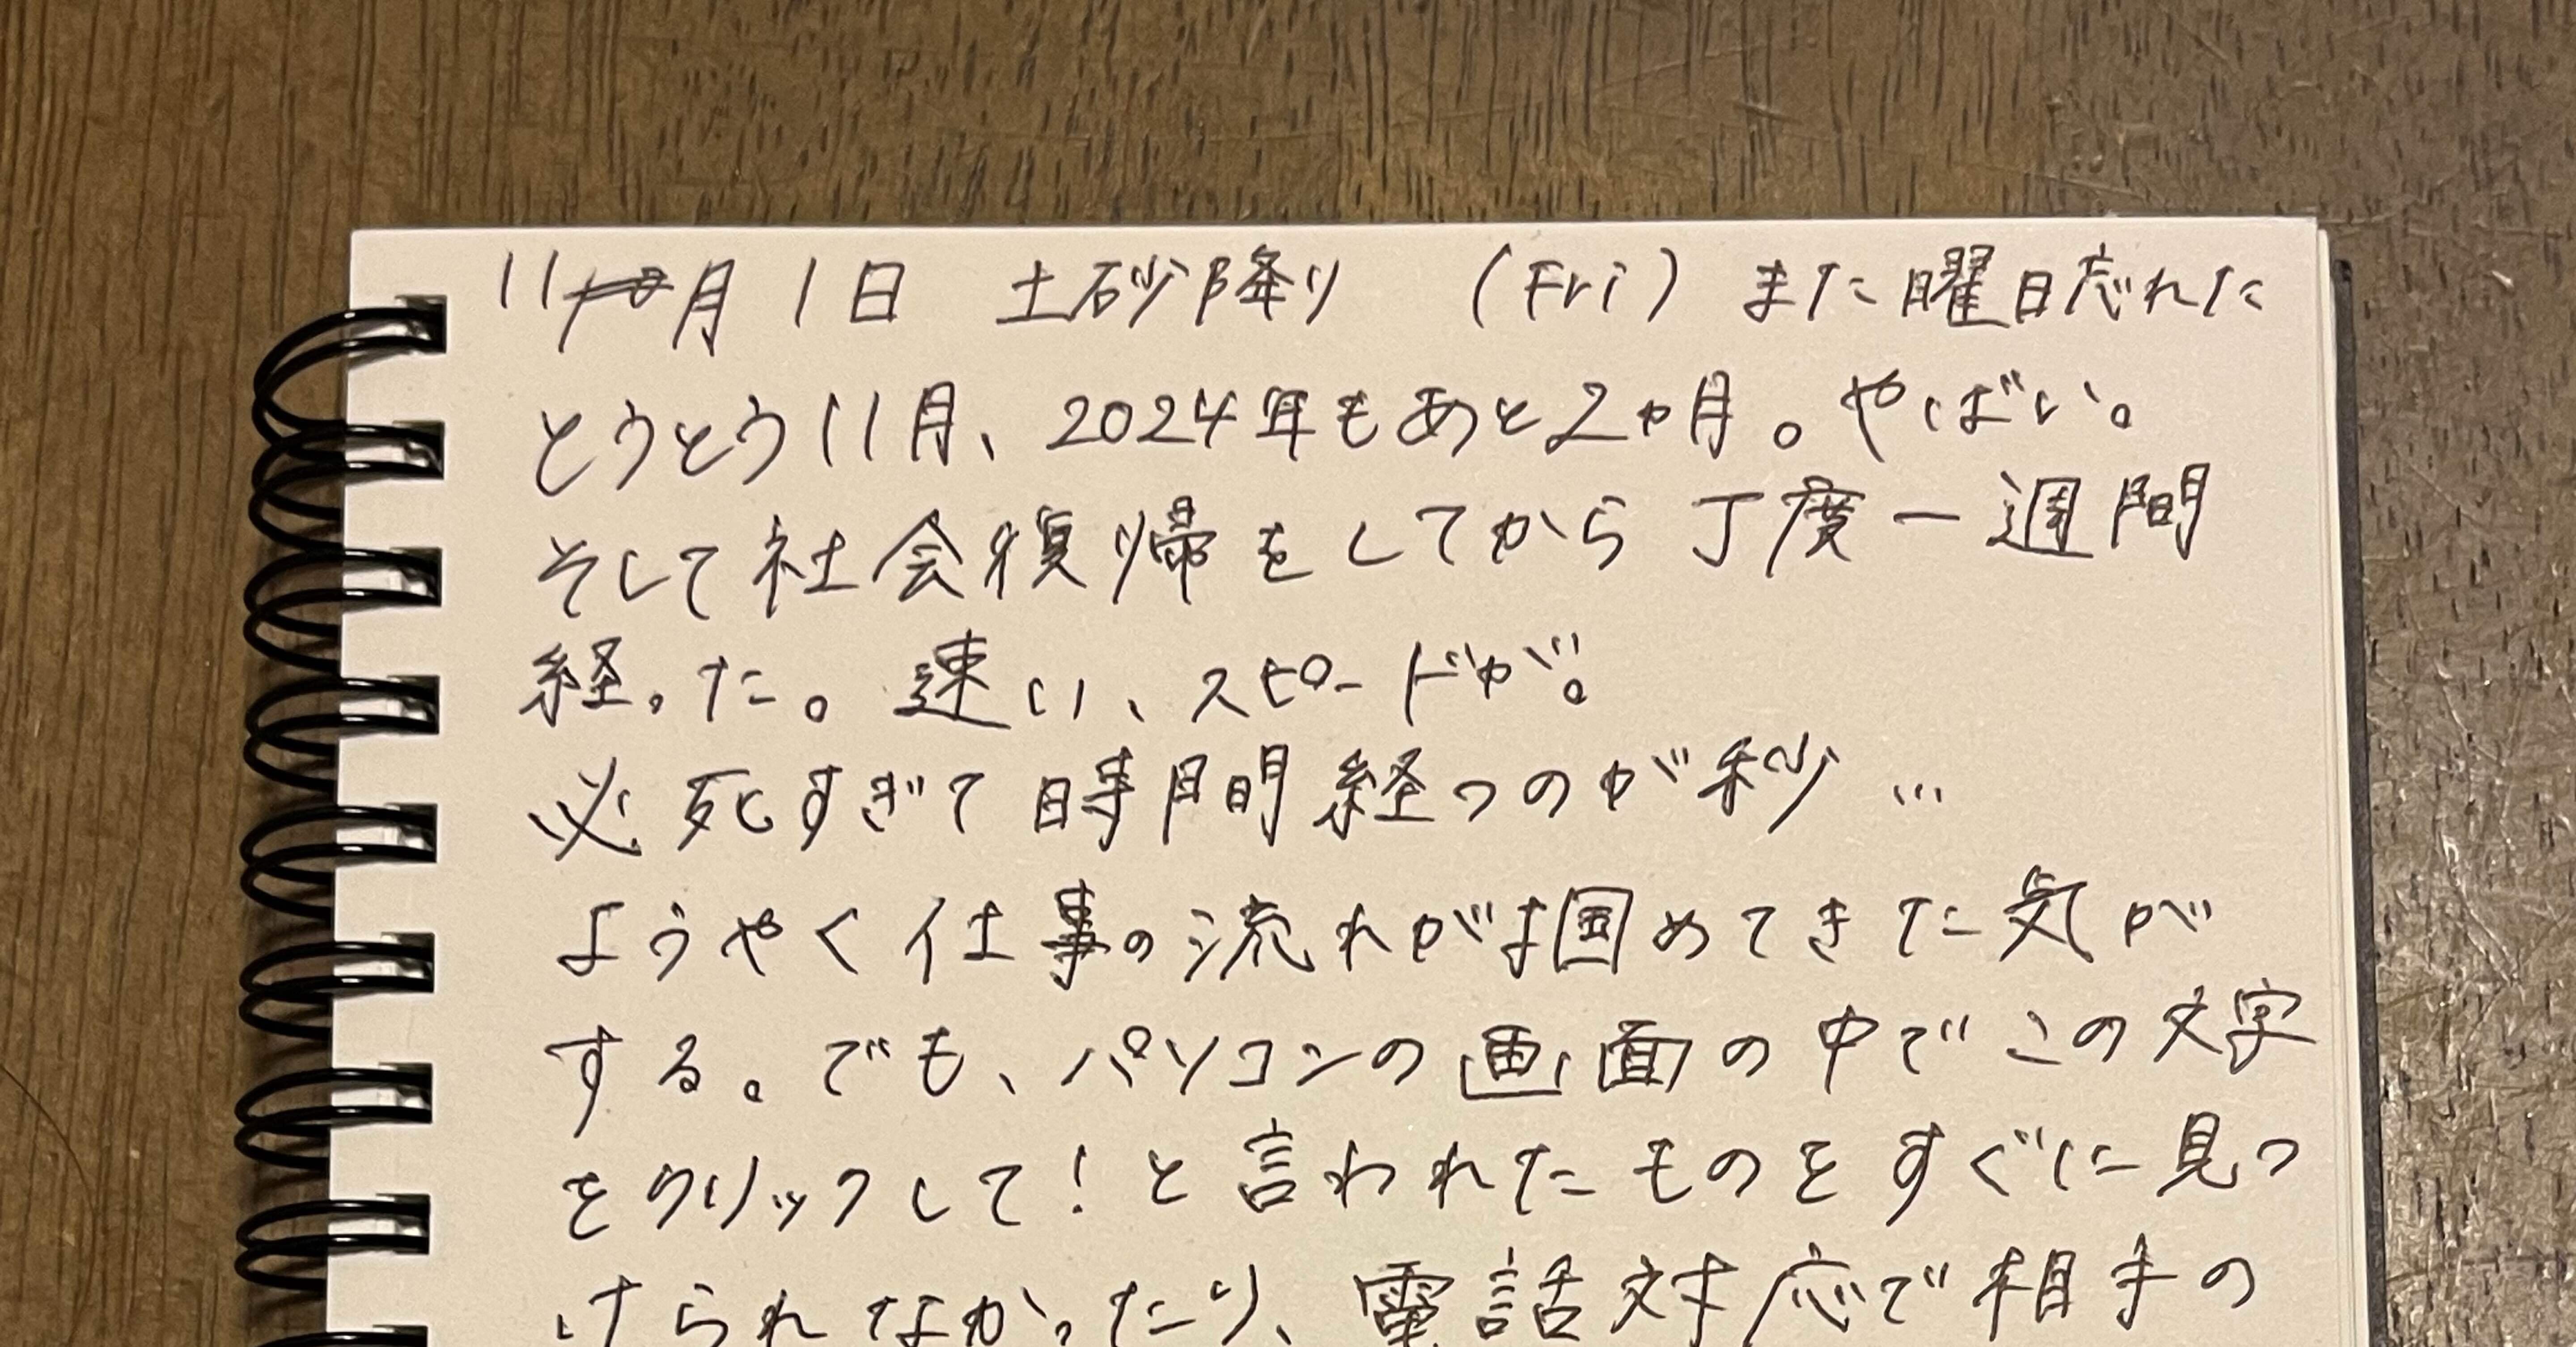 11月1日 土砂降り (Fri) また曜日忘れた
とうとう11月、2024年もあと2ヵ月。やばい。
そして社会復帰をしてから丁度一週間
経った。速い、スピードが。
必死すぎて時間経つのが秒…
ようやく仕事の流れが掴めてきた気が
する。でも、パソコンの画面の中でこの文字
をクリックして!と言われたものをすぐに見つ
けられなかったり、電話対応で相手の